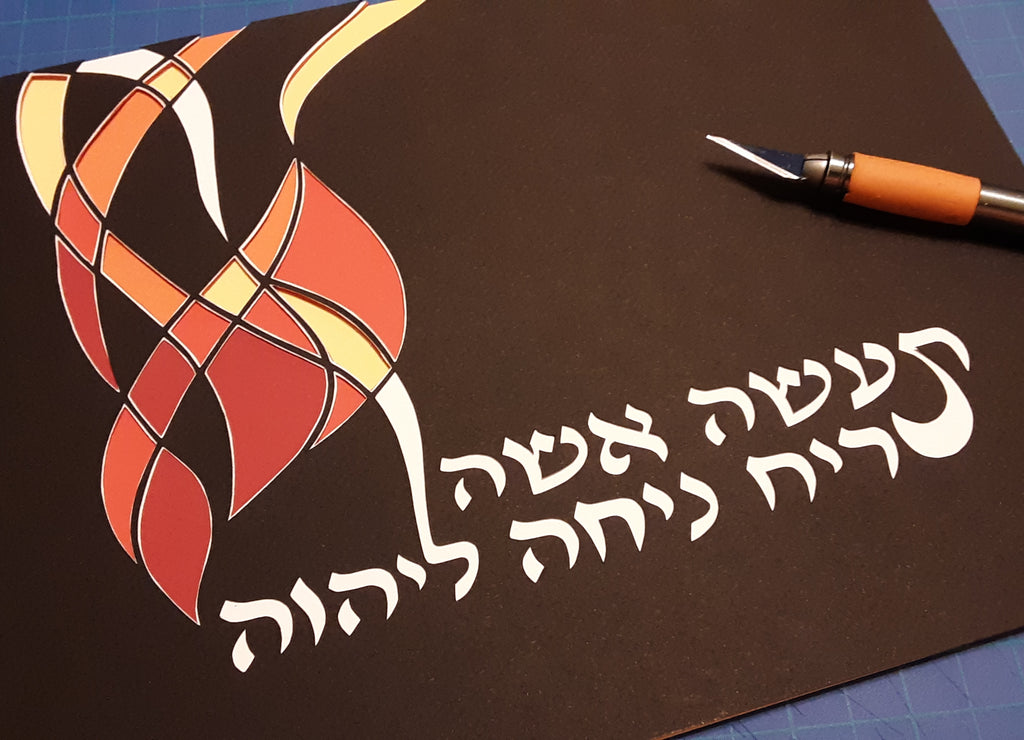 תעשה אשה
ריח ניחה ליהוה